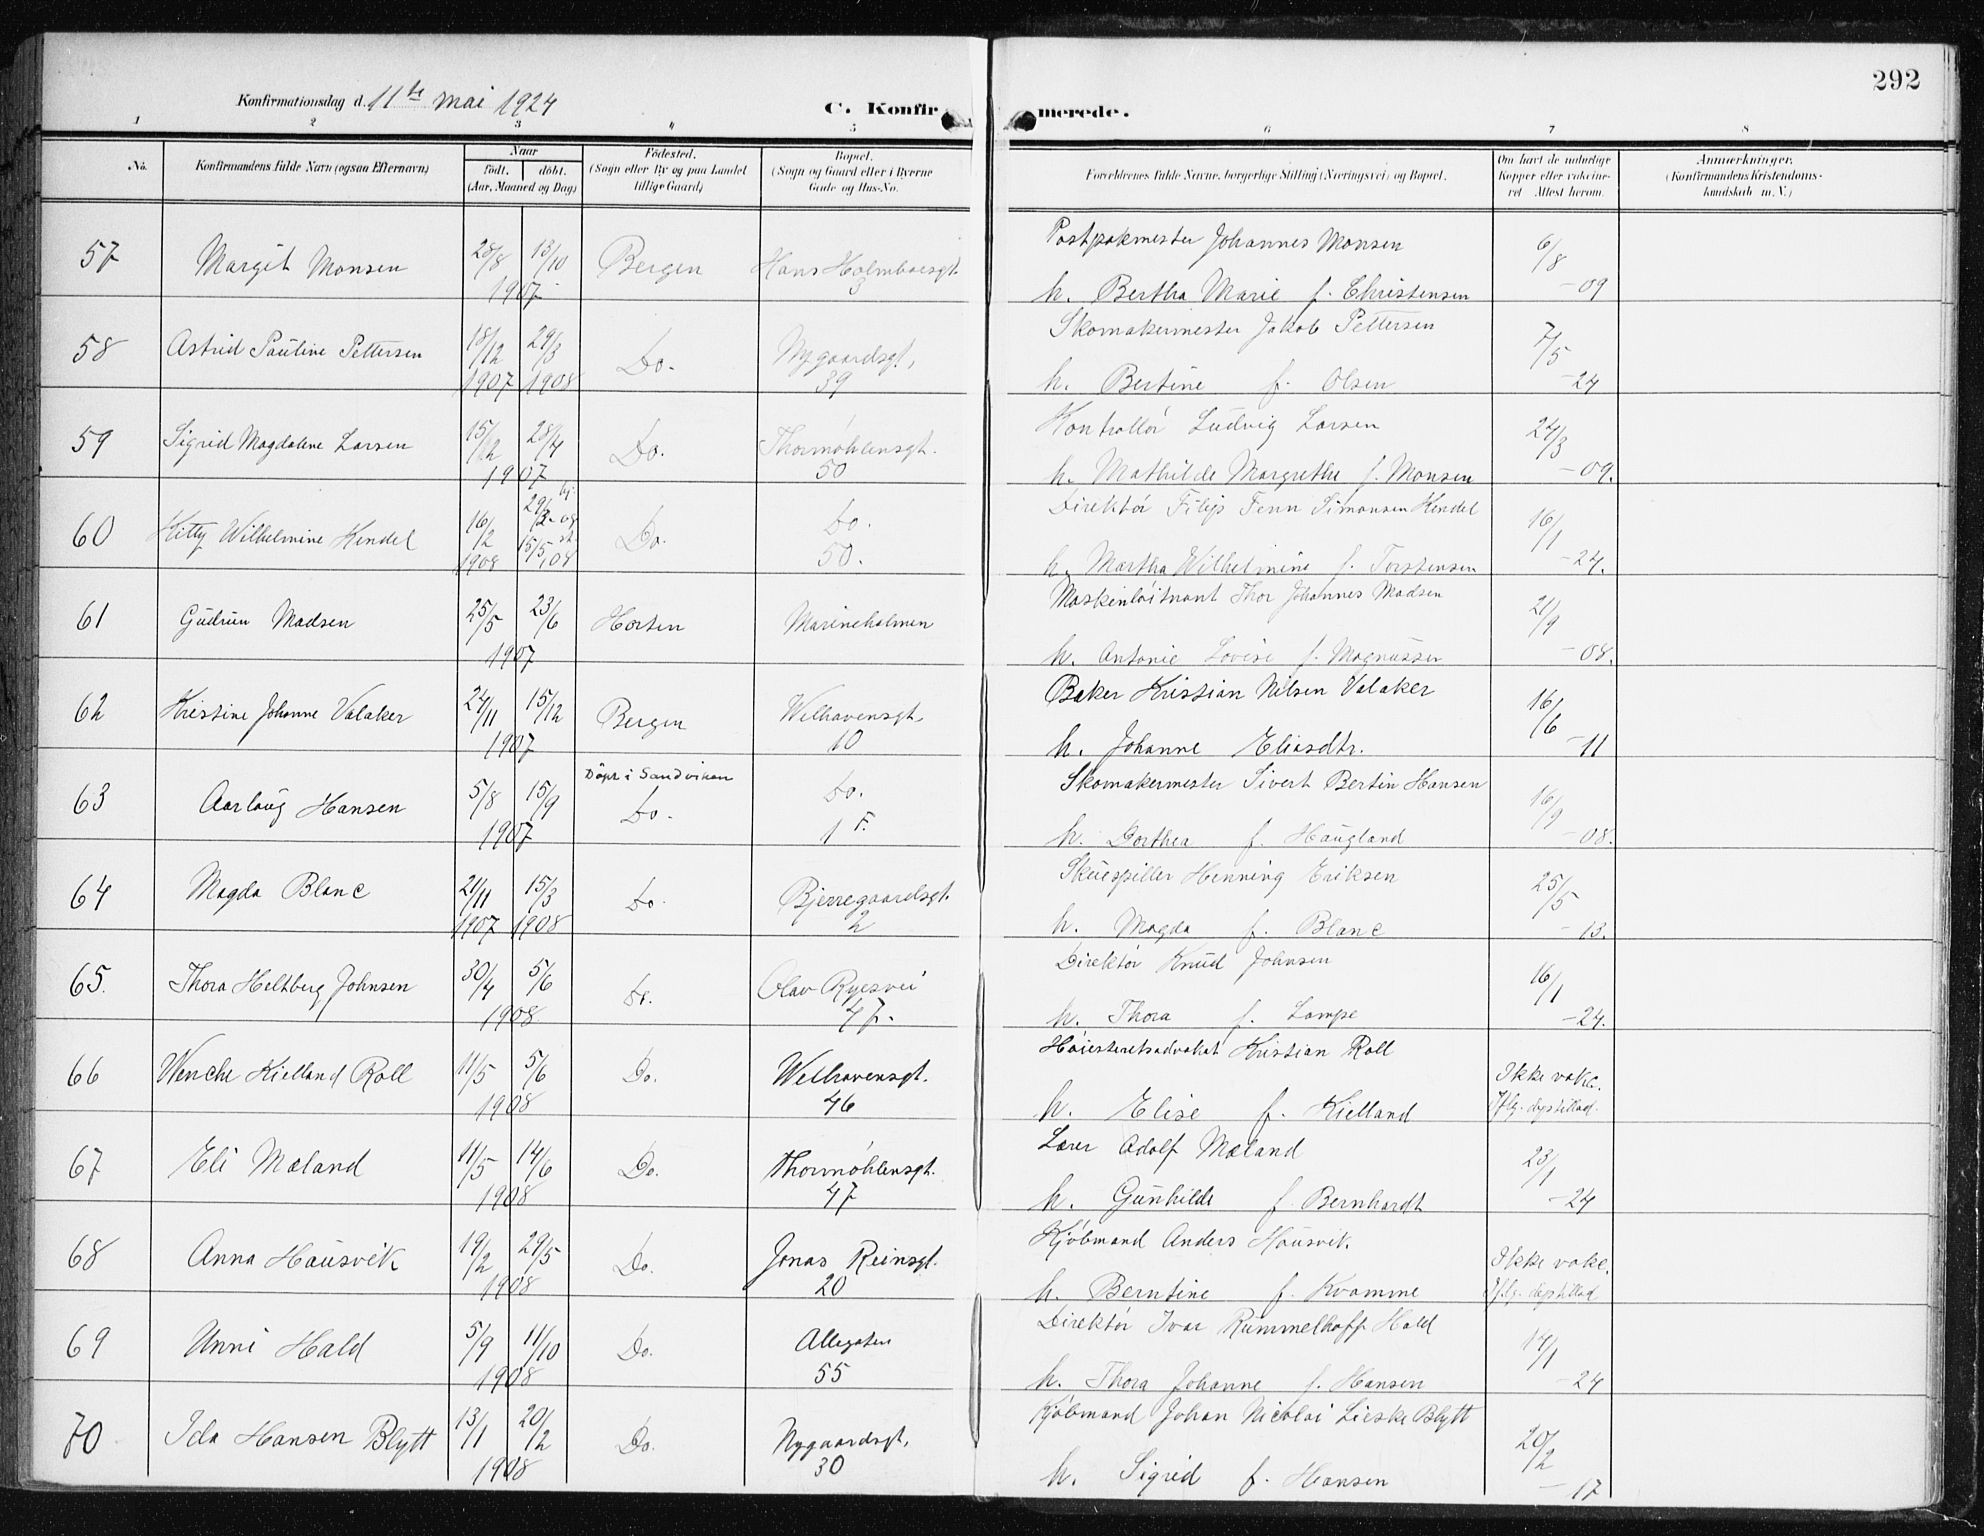 292
Konfirmationsdag d. 11te mai 1924
C. Konfirmerede.
1 2 3 4 5 6 7 8
No.
Konfirmandens fulde Navn (ogsaa Efternavn)
Naar
født. døbt.
(Aar, Maaned og Dag)
Fødested.
(Sogn eller By og paa Landet
tillige Gaard)
Bopæl.
(Sogn og Gaard eller i Byerne
Gade og Hus-No.
Forældrenes fulde Navne, borgerlige Stilling (Næringsvei) og Bopæl.
Om havt de naturlige
Kopper eller vaccine-
ret Attest herom.
Anmærkninger.
(Konfirmandens Kristendoms-
kundskab m. V.)
57 Margit Monsen 28/8 13/10 1907 Bergen Hans Holmboesgt. 3
Postpakmester Johannes Monsen
h. Bertha Marie f. Christensen 6/8 -09
58 Astrid Pauline Pettersen 18/12 1907 29/3 1908 Do. Nygaardsgt. 39
Skomakermester Jakob Pettersen
h. Bertine f. Olsen 7/5 -24
59 Sigrid Magdalene Larsen 15/12 28/4 1907 Do. Thormøhlensgt. 50
Kontrollør Ludvig Larsen
h. Mathilde Margrethe f. Monsen 24/3 -09.
60 Kitty Wilhelmine Kendel 16/2 1908 hj. 29/2-08 st. 15/5,08 Do. Do. 50.
Direktør Filip Fenn Simonsen Kendel
h. Martha Wilhelmine f. Torstensen 16/1 -24.
61 Gudrun Madsen 25/5 23/6 1907 Horten Marineholmen
Maskenløitnant Thor Johannes Madsen
h. Antonie Lovise f. Magnussen 21/9 -08.
62 Kristine Johanne Valaker 24/11 15/12 1907 Bergen Welhavensgt. 10
Baker Kristian Nilsen Valaker
h. Johanne Eliasdtr. 16/6 -11
63 Aarlaug Hansen 5/8 15/9 1907 Døpt i Sandviken Do. Do. 1 F.
Skomakermester Sivert Bertin Hansen
h. Dorthea f. Haugland 16/9 -08.
64 Magda Blanc 21/11 1907 15/3 1908 Do. Bjerregaardsgt. 2
Skuespiller Henning Eriksen
h. Magda f. Blanc 25/5 -13.
65. Thora Heltberg Johnsen 30/4 5/6 1908 Do. Olav Ryesvei 47.
Direktør Knud Johnsen
h. Thora f. Lampe 16/1 -24.
66 Wenche Kielland Roll 11/5 5/6 1908 Do. Welhavensgt. 46
Høiesteretsadvokat Kristian Roll
h. Elise f. Kielland Ikke vakc. Iflg. dispstillad.
67 Eli Mæland 11/5 14/6 1908 Do. Thormøhlensgt. 47
Lærer Adolf Mæland
h. Gunhilde f. Bernhardt 23/1 -24
68 Anna Hausvik 19/2 29/5 1908 Do. Jonas Reinsgt. 20
Kjøbmand Anders Hausvik.
h. Berntine f. Kvamme Ikke vakc.
69 Unni Hald 5/9 11/10 1908 Do. Allegaten 55
Direktør Ivar Rummelhoff Hald
h. Thora Johanne f. Hansen 17/1 -24
70 Ida Hansen Blytt 13/1 20/2 1908 Do. Nygaardsgt. 30
Kjøbmand Johan Nicolai Lieske Blytt
h. Sigrid f. Hansen 20/2 -17